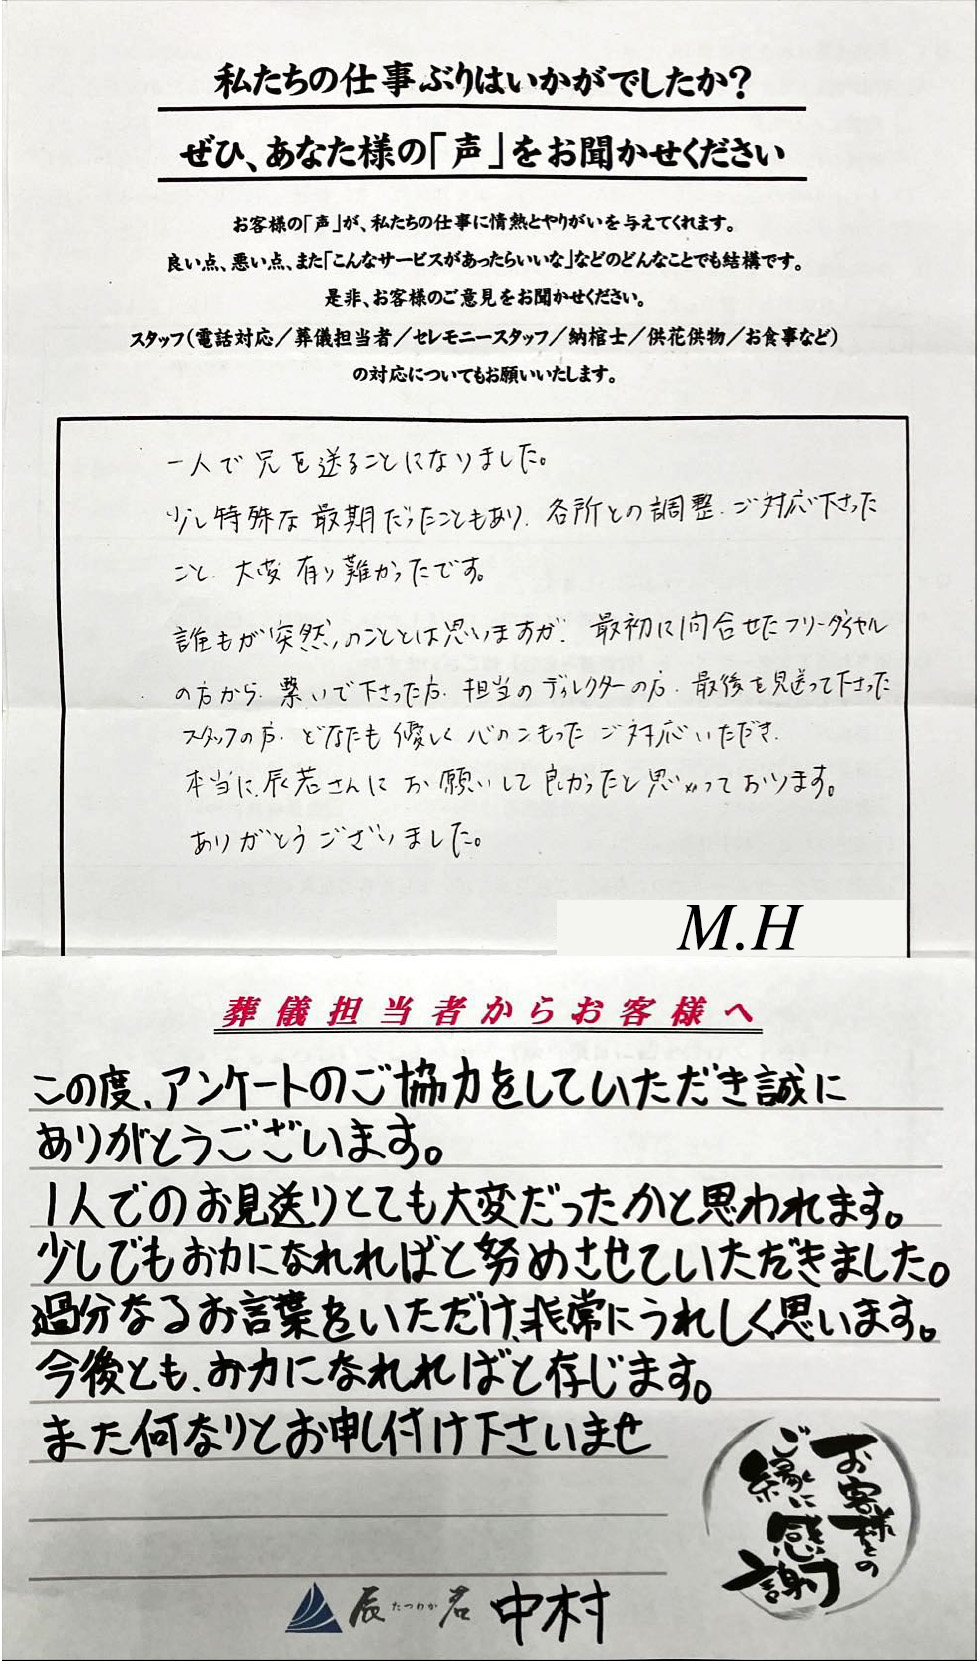 私たちの仕事ぶりはいかがでしたか?
ぜひ、あなた様の「声」をお聞かせください
お客様の「声」が、私たちの仕事に情熱とやりがいを与えてくれます。
良い点、悪い点、また「こんなサービスがあったらいいな」などのどんなことでも結構です。
是非、お客様のご意見をお聞かせください。
スタッフ(電話対応/葬儀担当者/セレモニースタッフ/納棺士/供花供物/お食事など)
の対応についてもお願いいたします。
一人で兄を送ることになりました。
少し特殊な最期だったこともあり、各所との調整、ご対応下さった
こと、大変有り難かったです。
誰もが突然のこととは思いますが、最初に問合せたフリーダイヤル
の方から、繋いで下さった方、担当のディレクターの方、最後を見送って下さった
スタッフの方、どなたも優しく心のこもったご対応いただき、
本当に、辰若さんにお願いして良かったと思っております。
ありがとうございました。
M.H
葬儀担当者からお客様へ
この度、アンケートのご協力をしていただき誠に
ありがとうございます。
1人でのお見送りとても大変だったかと思われます。
少しでもお力になれればと努めさせていただきました。
過分なるお言葉をいただけ、非常にうれしく思います。
今後とも、お力になれればと存じます。
また何なりとお申し付け下さいませ
お客様との
ご縁に
感謝
辰たつわか若 中村